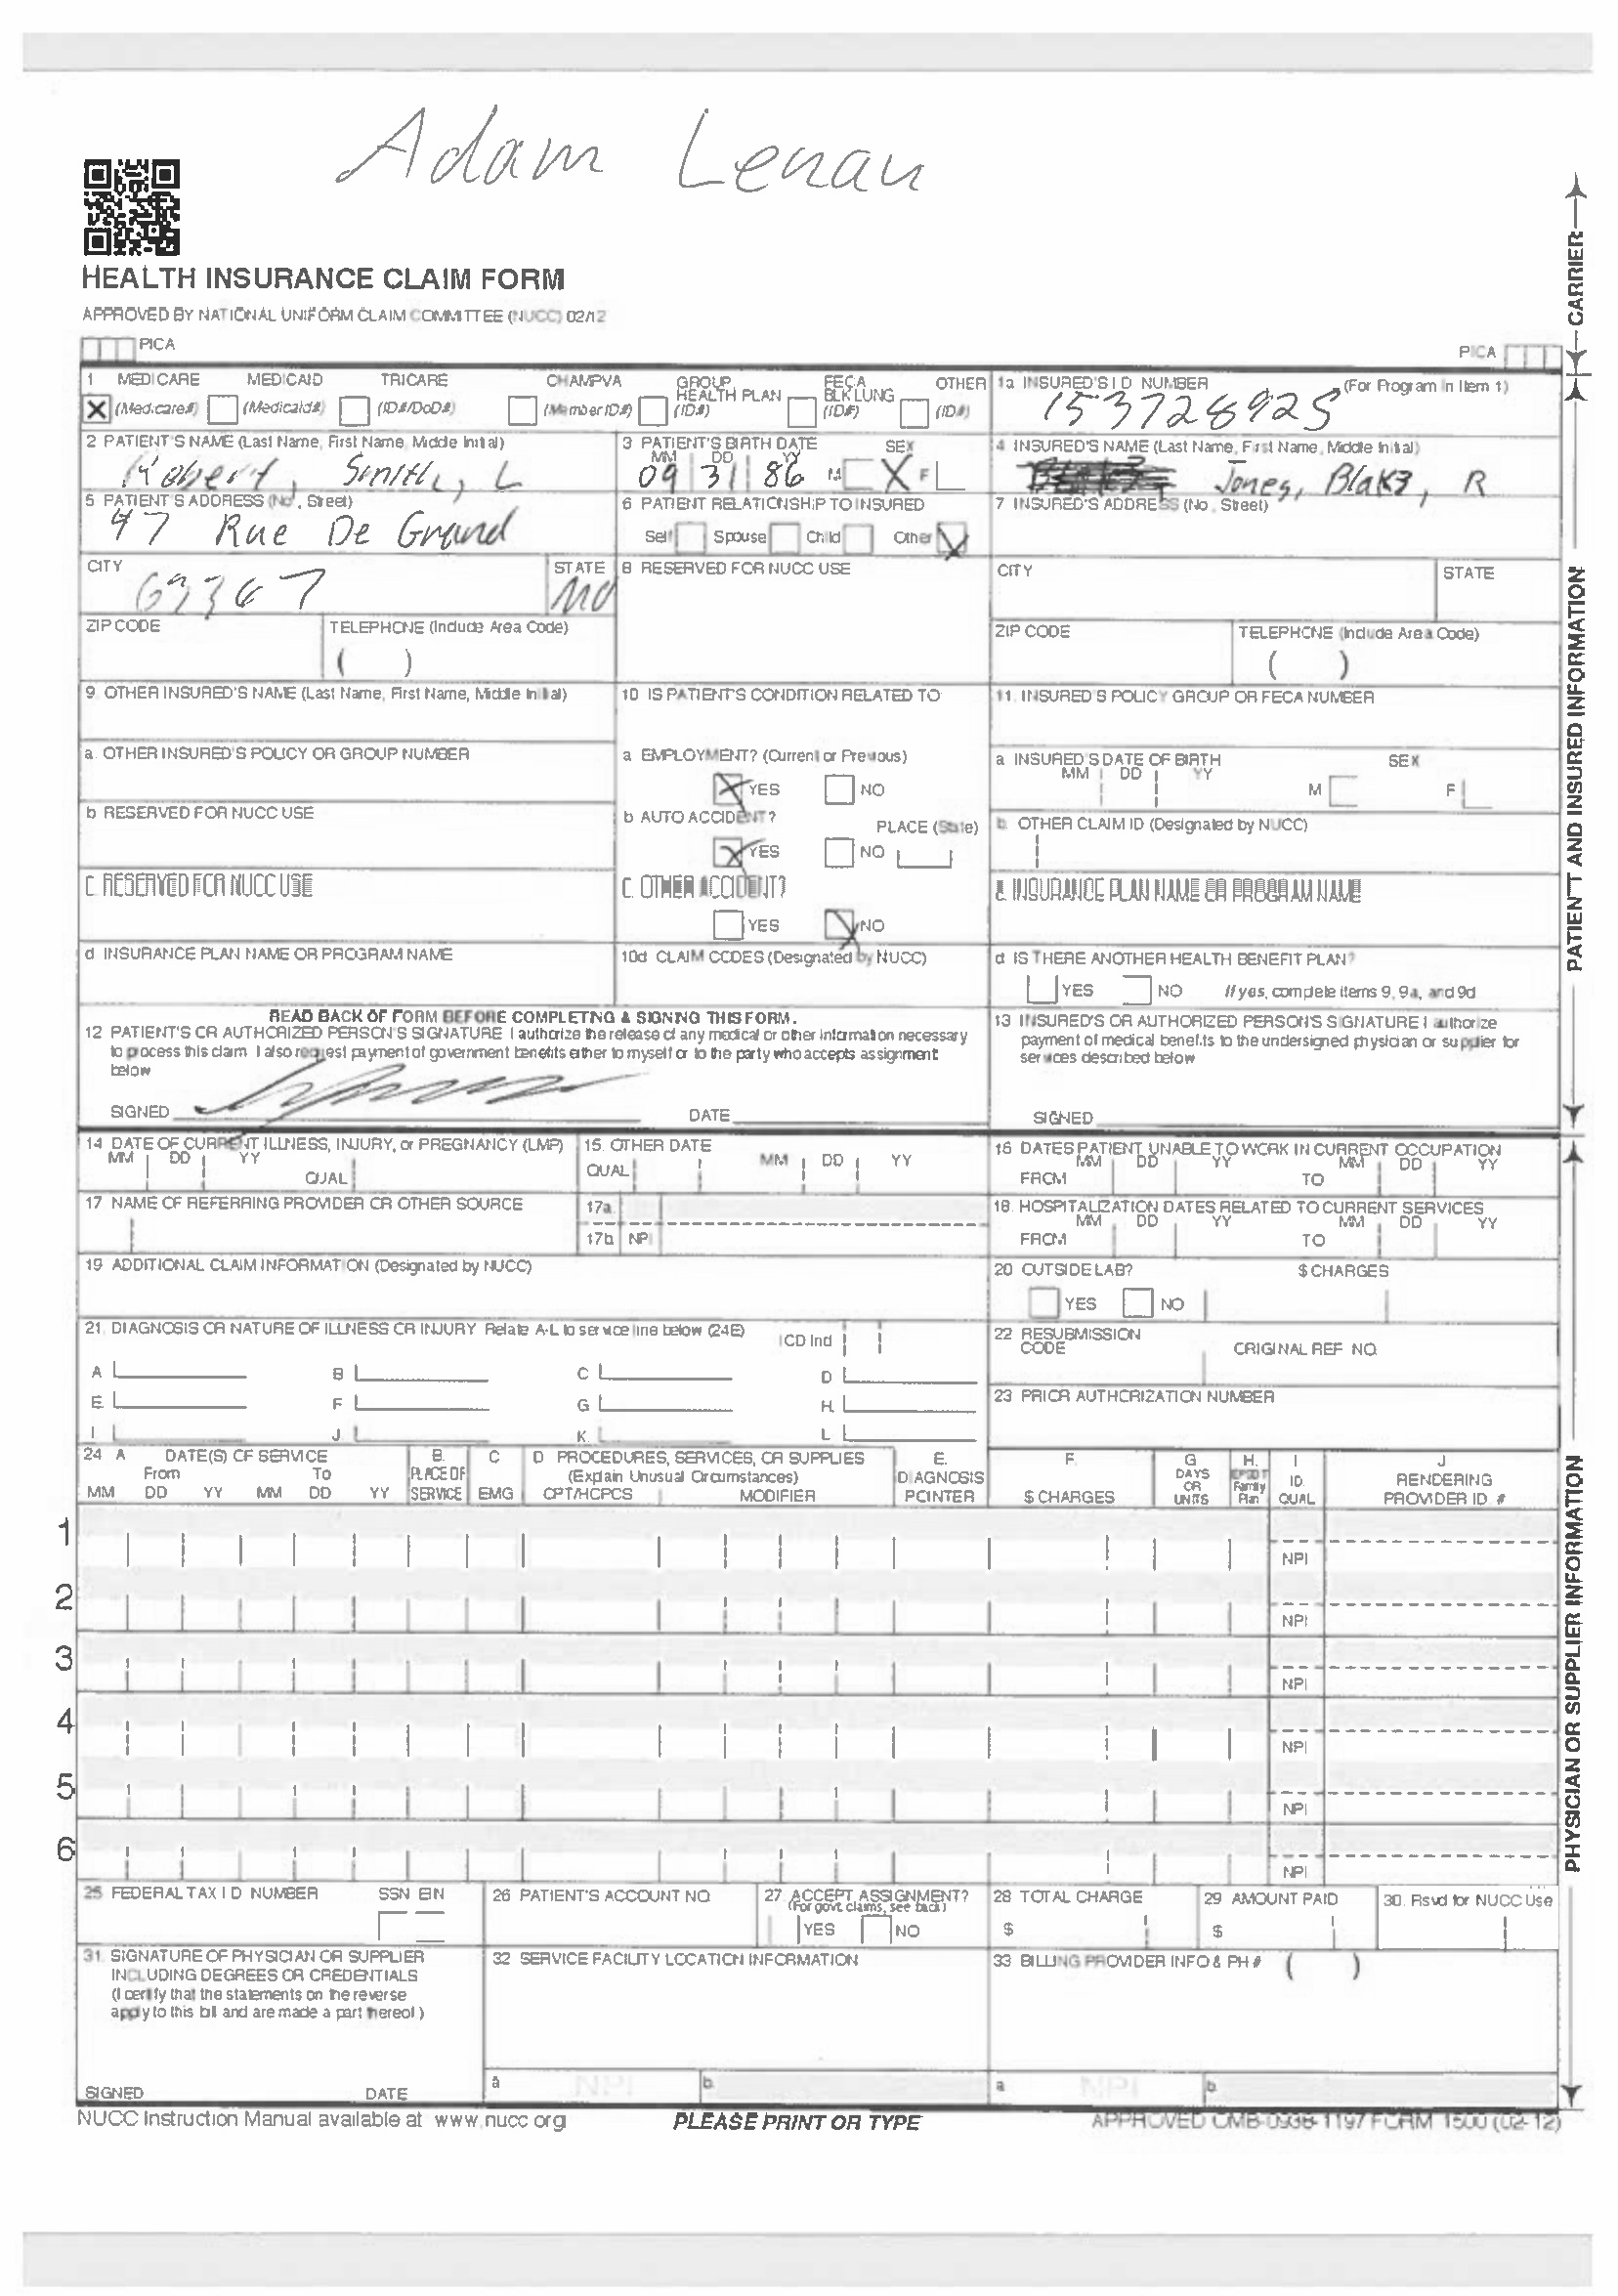 Adam Lenau
HEALTH INSURANCE CLAIM FORM
APPROVED BY NATIONAL UNIFORM CLAIM COMMITTEE (NUCC) 02/12
PICA
PICA
CARRIER
1 MEDICARE MEDICAID TRICARE CHAMPVA GROUP HEALTH PLAN FECA BLK LUNG OTHER
X (Medicare#) (Medicaid#) (ID#/DoD#) (Member ID#) (ID#) (ID#) (ID#)
1a INSURED'S I D NUMBER (For Program in Item 1)
153728925
2 PATIENT'S NAME (Last Name, First Name, Middle Initial)
Robert, Smith, L
3 PATIENT'S BIRTH DATE SEX
MM DD YY
09 31 86 M X F
4 INSURED'S NAME (Last Name, First Name, Middle Initial)
Jones, Blake, R
5 PATIENT'S ADDRESS (No., Street)
47 Rue De Grand
6 PATIENT RELATIONSHIP TO INSURED
Self Spouse Child Other X
7 INSURED'S ADDRESS (No., Street)
CITY STATE
MO
8 RESERVED FOR NUCC USE
CITY STATE
ZIP CODE TELEPHONE (Include Area Code)
( )
ZIP CODE TELEPHONE (Include Area Code)
( )
9. OTHER INSURED'S NAME (Last Name, First Name, Middle Initial)
10 IS PATIENT'S CONDITION RELATED TO
11. INSURED'S POLICY GROUP OR FECA NUMBER
a. OTHER INSURED'S POLICY OR GROUP NUMBER
a EMPLOYMENT? (Current or Previous)
X YES NO
a INSURED'S DATE OF BIRTH SEX
MM DD YY M F
b RESERVED FOR NUCC USE
b AUTO ACCIDENT? PLACE (State)
X YES NO
b. OTHER CLAIM ID (Designated by NUCC)
C RESERVED FOR NUCC USE
C. OTHER ACCIDENT?
YES X NO
C. INSURANCE PLAN NAME OR PROGRAM NAME
d INSURANCE PLAN NAME OR PROGRAM NAME
10d CLAIM CODES (Designated by NUCC)
d IS THERE ANOTHER HEALTH BENEFIT PLAN?
YES NO If yes, complete items 9, 9a, and 9d
PATIENT AND INSURED INFORMATION
READ BACK OF FORM BEFORE COMPLETING & SIGNING THIS FORM.
12 PATIENT'S OR AUTHORIZED PERSON'S SIGNATURE I authorize the release of any medical or other information necessary
to process this claim I also request payment of government benefits either to myself or to the party who accepts assignment
below
SIGNED DATE
13 INSURED'S OR AUTHORIZED PERSON'S SIGNATURE I authorize
payment of medical benefits to the undersigned physician or supplier for
services described below
SIGNED
14 DATE OF CURRENT ILLNESS, INJURY, or PREGNANCY (LMP)
MM DD YY QUAL
15. OTHER DATE
QUAL MM DD YY
16 DATES PATIENT UNABLE TO WORK IN CURRENT OCCUPATION
MM DD YY MM DD YY
FROM TO
17 NAME OF REFERRING PROVIDER OR OTHER SOURCE
17a.
17b NPI
18. HOSPITALIZATION DATES RELATED TO CURRENT SERVICES
MM DD YY MM DD YY
FROM TO
19 ADDITIONAL CLAIM INFORMATION (Designated by NUCC)
20 OUTSIDE LAB? $ CHARGES
YES NO
21. DIAGNOSIS OR NATURE OF ILLNESS OR INJURY Relate A-L to service line below (24E) ICD Ind
A B C D
E F G H
I J K L
22 RESUBMISSION CODE ORIGINAL REF NO
23 PRIOR AUTHORIZATION NUMBER
24 A DATE(S) OF SERVICE B. C D PROCEDURES, SERVICES, OR SUPPLIES E. F. G H. I J
From To PLACE OF SERVICE EMG (Explain Unusual Circumstances) DIAGNOSIS POINTER $ CHARGES DAYS OR UNITS EPSDT Family Plan ID. QUAL RENDERING PROVIDER ID #
MM DD YY MM DD YY CPT/HCPCS MODIFIER
1 NPI
2 NPI
3 NPI
4 NPI
5 NPI
6 NPI
PHYSICIAN OR SUPPLIER INFORMATION
25 FEDERAL TAX I D NUMBER SSN EIN
26 PATIENT'S ACCOUNT NO
27 ACCEPT ASSIGNMENT?
(For govt. claims, see back)
YES NO
28 TOTAL CHARGE
$
29 AMOUNT PAID
$
30. Rsvd for NUCC Use
31. SIGNATURE OF PHYSICIAN OR SUPPLIER
INCLUDING DEGREES OR CREDENTIALS
(I certify that the statements on the reverse
apply to this bill and are made a part thereof.)
SIGNED DATE
32 SERVICE FACILITY LOCATION INFORMATION
a NPI b
33 BILLING PROVIDER INFO & PH # ( )
a NPI b
NUCC Instruction Manual available at www.nucc org
PLEASE PRINT OR TYPE
APPROVED OMB-0938-1197 FORM 1500 (02-12)